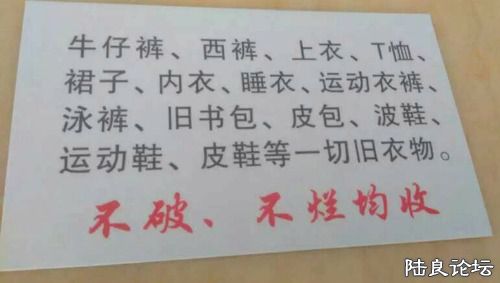 牛仔裤、西裤、上衣、T恤、
裙子、内衣、睡衣、运动衣裤、
泳裤、旧书包、皮包、波鞋、
运动鞋、皮鞋等一切旧衣物。
不破、不烂均收
陆良论坛